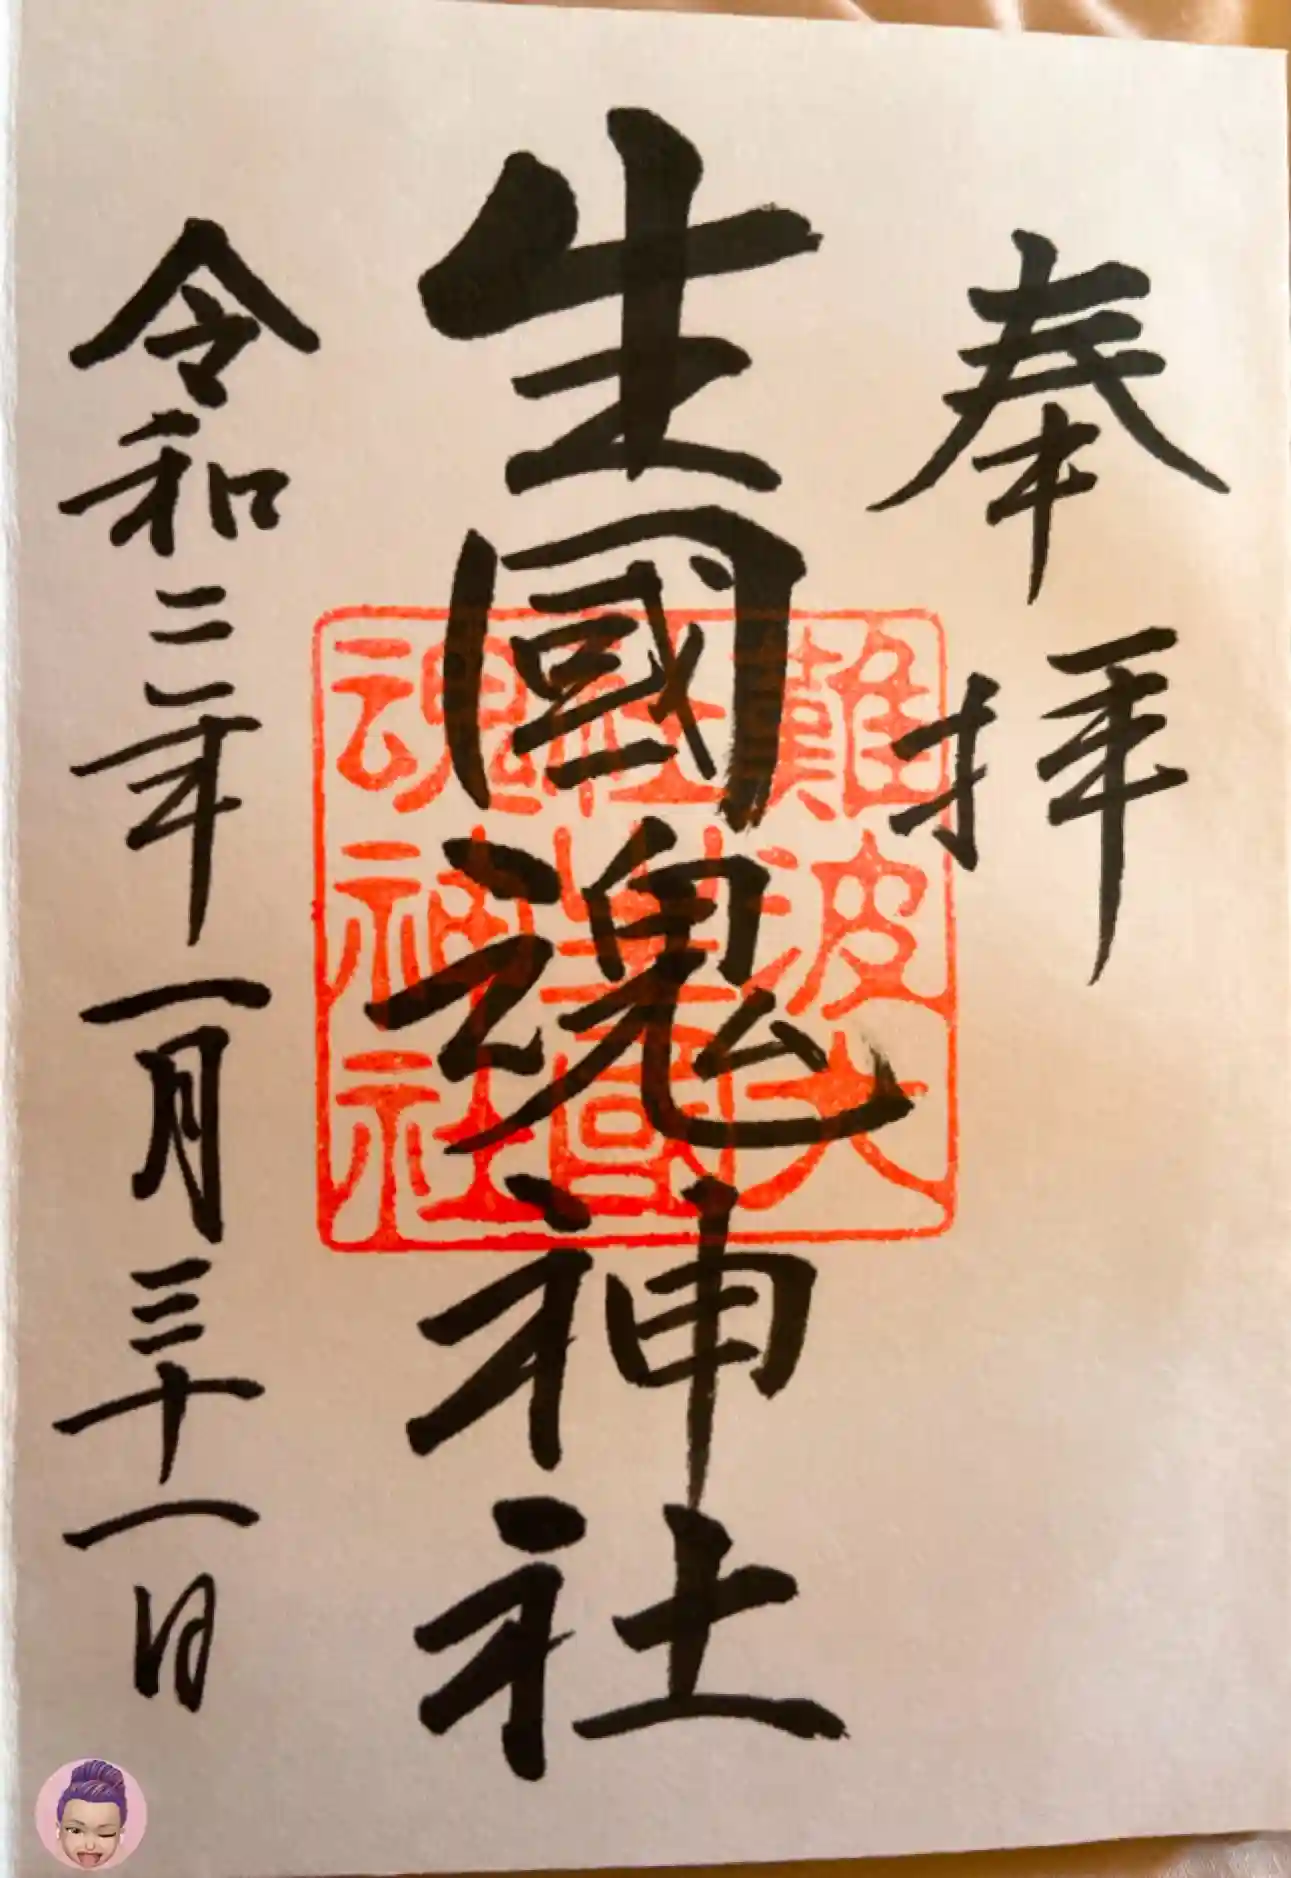 奉拝
生國魂神社
難波大
社生國
魂神社
令和二年一月三十一日